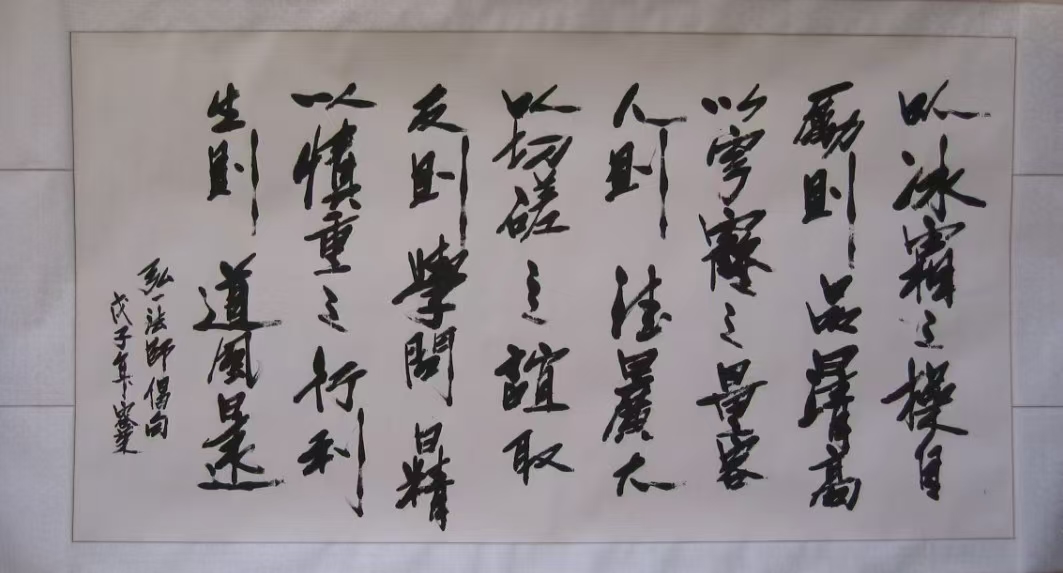 以冰霜之操自
勵則品日清高
以穹窿之量容
人則德日廣大
以切磋之誼取
友則學問日精
以慎重之行利
生則道風日遠
弘一法師偈句
戊子